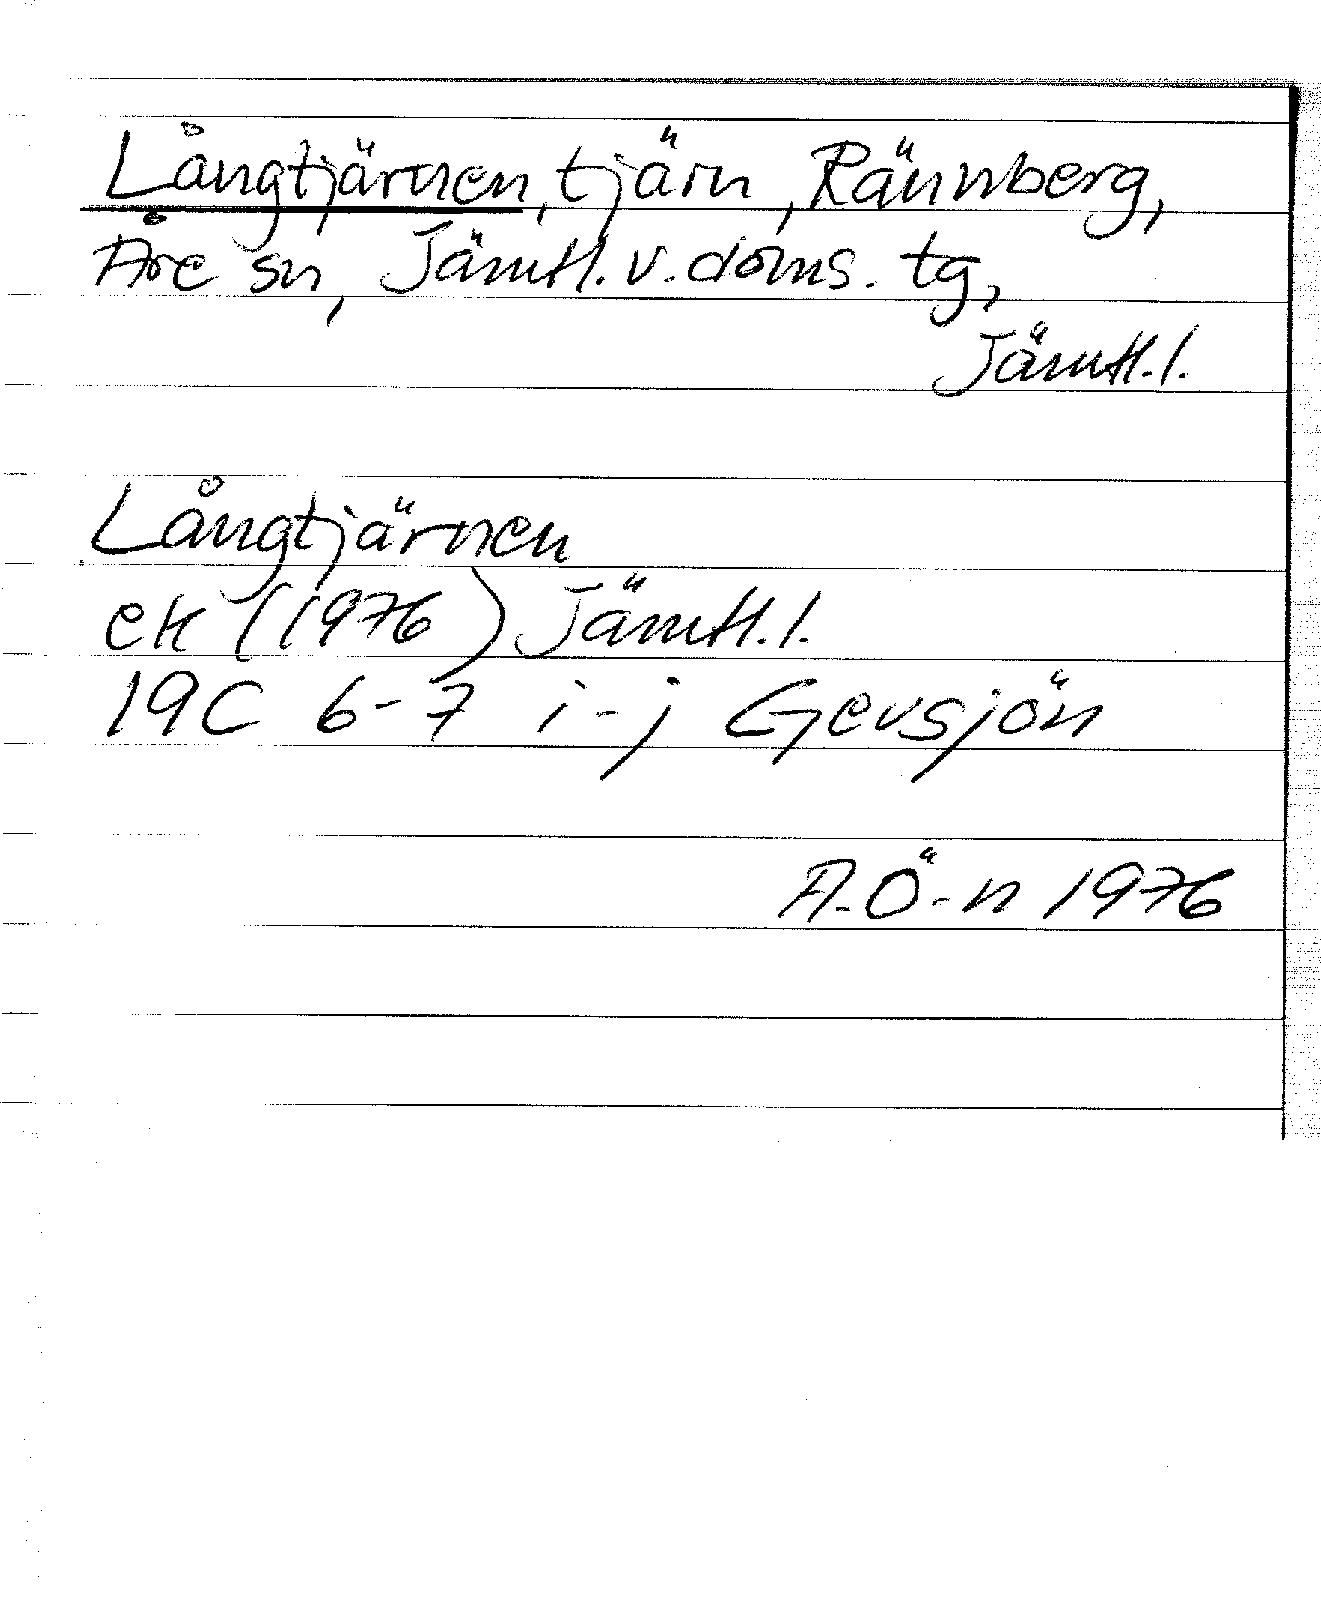 Långtjärnen, tjärn, Rännberg,
Åre sn, Jämtl. v. doms. tg,
Jämtl. l.
Långtjärnen
ek (1976) Jämtl. l.
19C 6-7 i-j Gevsjön
A. Ö-n 1976